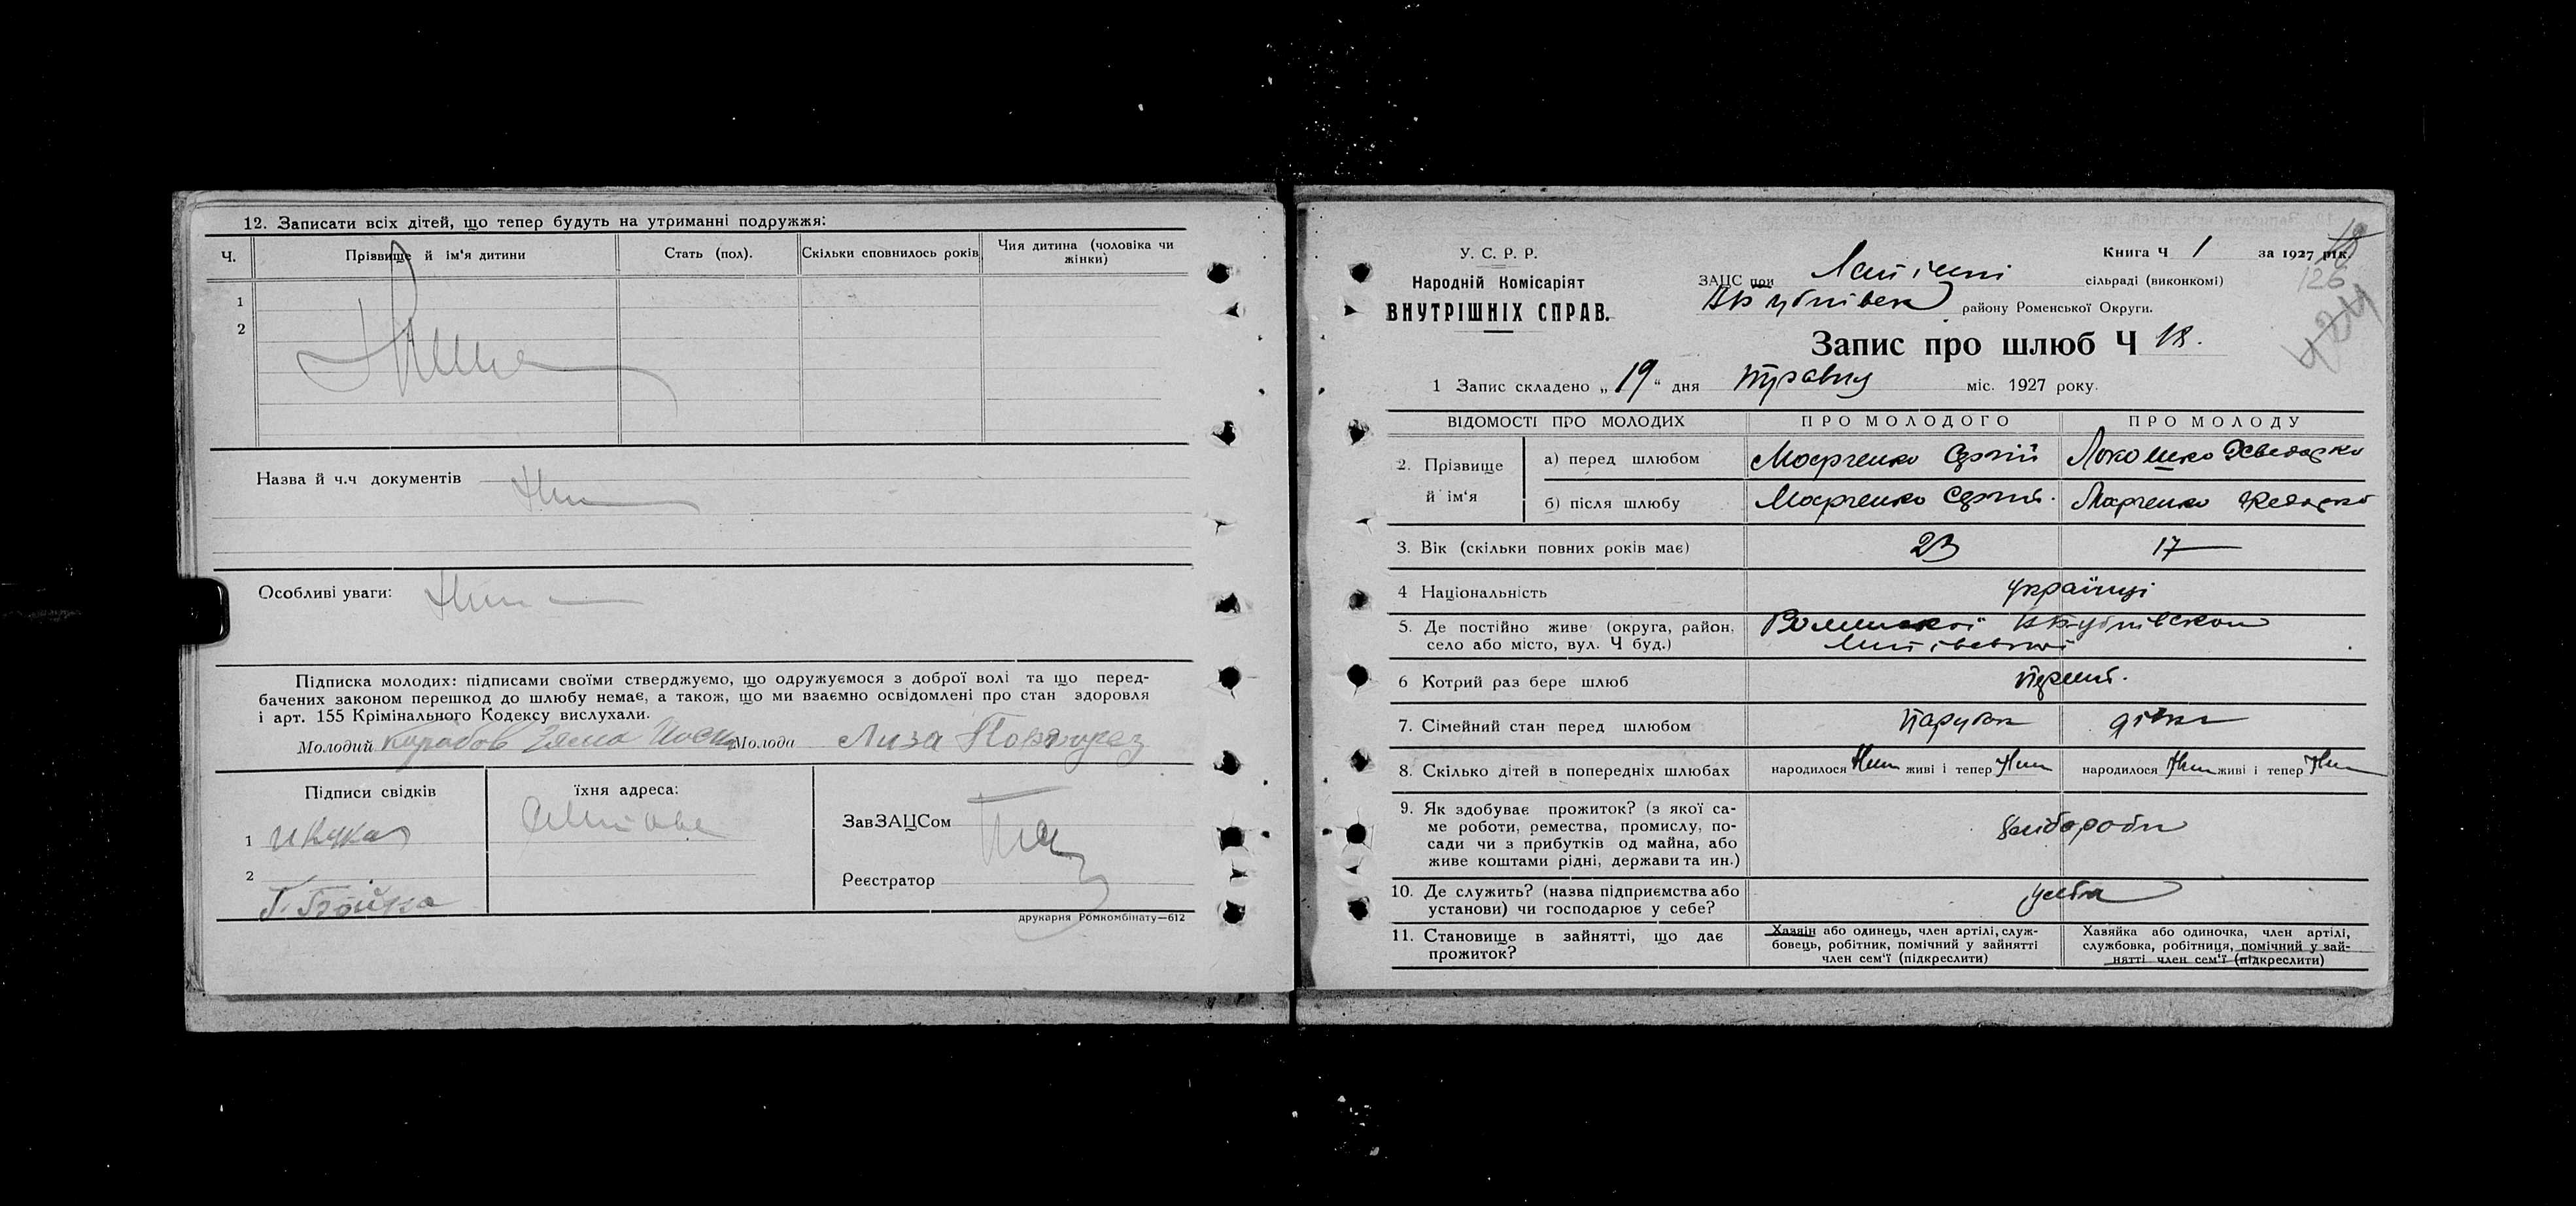 12. Записати всіх дітей, що тепер будуть на утриманні подружжя:
Ч.
Прізвище й ім'я дитини
Стать (пол).
Скільки сповнилось років
Чия дитина (чоловіка чи жінки)
1
2
Назва й ч.ч документів
Особливі уваги:
Підписка молодих: підписами своїми стверджуємо, що одружуємося з доброї волі та що перед-
бачених законом перешкод до шлюбу немає, а також, що ми взаємно освідомлені про стан здоровля
і арт. 155 Крімінального Кодексу вислухали.
Молодий Молода Лиза
Підписи свідків
їхня адреса:
1
2
ЗавЗАЦСом
Реєстратор
друкарня Ромкомбінату—612
У. С. Р. Р.
Народній Комісаріят
ВНУТРІШНІХ СПРАВ.
Книга Ч 1 за 1927 рік.
126
ЗАЦС при сільраді (виконкомі)
району Роменської Округи.
Запис про шлюб Ч 18.
1 Запис складено „19“ дня травня міс. 1927 року.
ВІДОМОСТІ ПРО МОЛОДИХ
ПРО МОЛОДОГО
ПРО МОЛОДУ
2. Прізвище й ім'я
а) перед шлюбом
Марченко Сергій
б) після шлюбу
Марченко Сергій.
Марченко
3. Вік (скільки повних років має)
23
17
4 Національність
українці
5. Де постійно живе (округа, район,
село або місто, вул. Ч буд.)
6 Котрий раз бере шлюб
перший.
7. Сімейний стан перед шлюбом
Парубок
дівка
8. Скілько дітей в попередніх шлюбах
народилося живі і тепер
народилося живі і тепер
9. Як здобуває прожиток? (з якої са-
ме роботи, ремества, промислу, по-
сади чи з прибутків од майна, або
живе коштами рідні, держави та ин.)
хлібороби
10. Де служить? (назва підприємства або
установи) чи господарює у себе?
у себе
11. Становище в зайнятті, що дає
прожиток?
Хазяін або одинець, член артілі, служ-
бовець, робітник, помічний у зайнятті
член сем'ї (підкреслити)
Хазяйка або одиночка, член артілі,
службовка, робітниця, помічний у зай-
нятті член сем'ї (підкреслити)